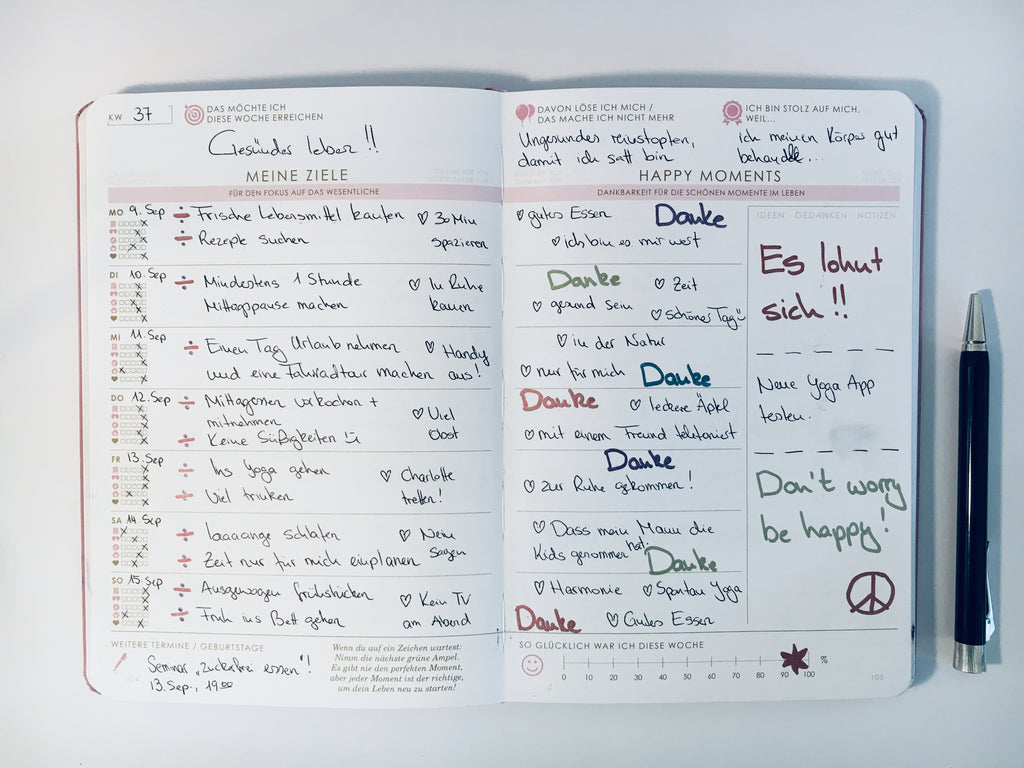 KW 37
DAS MÖCHTE ICH
DIESE WOCHE ERREICHEN
Gesünder leben !!
MEINE ZIELE
FÜR DEN FOKUS AUF DAS WESENTLICHE
MO 9. Sep
÷ Frische Lebensmittel kaufen
♡ 30 Min
spazieren
÷ Rezepte suchen
DI 10. Sep
÷ Mindestens 1 Stunde
Mittagspause machen
♡ In Ruhe
kauen
MI 11. Sep
÷ Einen Tag Urlaub nehmen
und eine Fahrradtour machen
♡ Handy
aus!
DO 12. Sep
÷ Mittagessen vorkochen +
mitnehmen
♡ Viel
Obst
÷ Keine Süßigkeiten
FR 13. Sep
÷ Ins Yoga gehen
÷ Viel trinken
♡ Charlotte
treffen!
SA 14. Sep
÷ laaaange schlafen
÷ Zeit nur für mich einplanen
♡ Nein
sagen
SO 15. Sep
÷ Ausgewogen frühstücken
÷ Früh ins Bett gehen
♡ Kein TV
am Abend
WEITERE TERMINE / GEBURTSTAGE
Seminar „Zuckerfrei essen"!
13. Sep., 19.00
Wenn du auf ein Zeichen wartest:
Nimm die nächste grüne Ampel.
Es gibt nie den perfekten Moment,
aber jeder Moment ist der richtige,
um dein Leben neu zu starten!
DAVON LÖSE ICH MICH /
DAS MACHE ICH NICHT MEHR
Ungesundes reinstopfen,
damit ich satt bin
ICH BIN STOLZ AUF MICH,
WEIL...
ich meinen Körper gut
behandle...
HAPPY MOMENTS
DANKBARKEIT FÜR DIE SCHÖNEN MOMENTE IM LEBEN
♡ gutes Essen Danke
♡ ich bin es mir wert
Danke ♡ Zeit
♡ gesund sein ♡ schöner Tag
♡ in der Natur
♡ nur für mich Danke
Danke ♡ leckere Äpfel
♡ mit einem Freund telefoniert
Danke
♡ zur Ruhe gekommen!
♡ Dass mein Mann die
Kids genommen hat.
Danke
♡ Harmonie ♡ Spontan Yoga
Danke ♡ Gutes Essen
IDEEN - GEDANKEN - NOTIZEN
Es lohnt
sich !!
Neue Yoga App
testen.
Don't worry
be happy!
SO GLÜCKLICH WAR ICH DIESE WOCHE
0 10 20 30 40 50 60 70 80 90 100 %
105